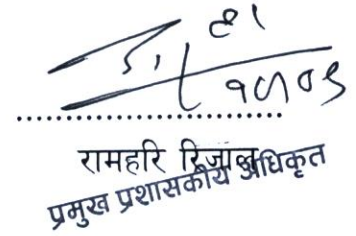 ..............................
रामहरि रिजाल
प्रमुख प्रशासकीय अधिकृत